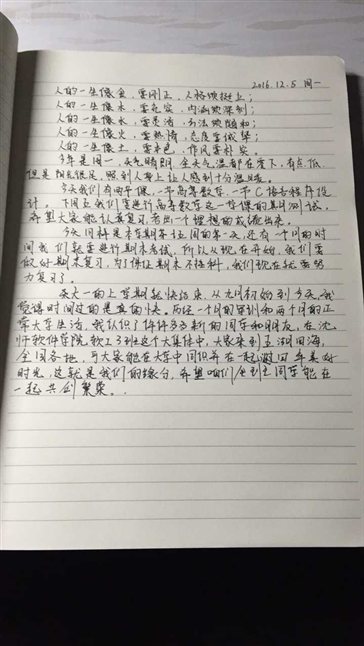 2016.12.5 周一
人的一生像金,要刚正,人格须挺立;
人的一生像木,要充实,内涵须深刻;
人的一生像水,要灵活,方法须随和;
人的一生像火,要热情,态度要诚挚;
人的一生像土,要本色,作风要朴实。
今天是周一,天气晴朗,全天气温都在零下,有点低
但是阳光很足,照到人身上让人感到十分温暖。
今天我们有两节课,一节高等数学,一节C语言程序设
计。下周五我们要进行高等数学这一节课的期测试,
希望大家能认真复习,考出一个理想的成绩出来。
今天同样是本学期第十五周的第一天,还有一个月的时
间我们就要进行期末考试,所以从现在开始,我们要
做好期末复习,为了保证期末不挂科,我们现在就要努
力复习了。
大一的上学期就快结束,从九月初的到今天,我
觉得时间过的是真的快。历经一个月的军训和两个月的正
常大学生活,我认识了许许多多新的同学和朋友,在沈
师软件学院,软工3班这个大集体中,大家来到五湖四海,
全国各地,可大家能在大学中相识并在一起度过四年美好
时光,这就是我们的缘分,希望咱们全到主同学能在
一起共创繁荣。